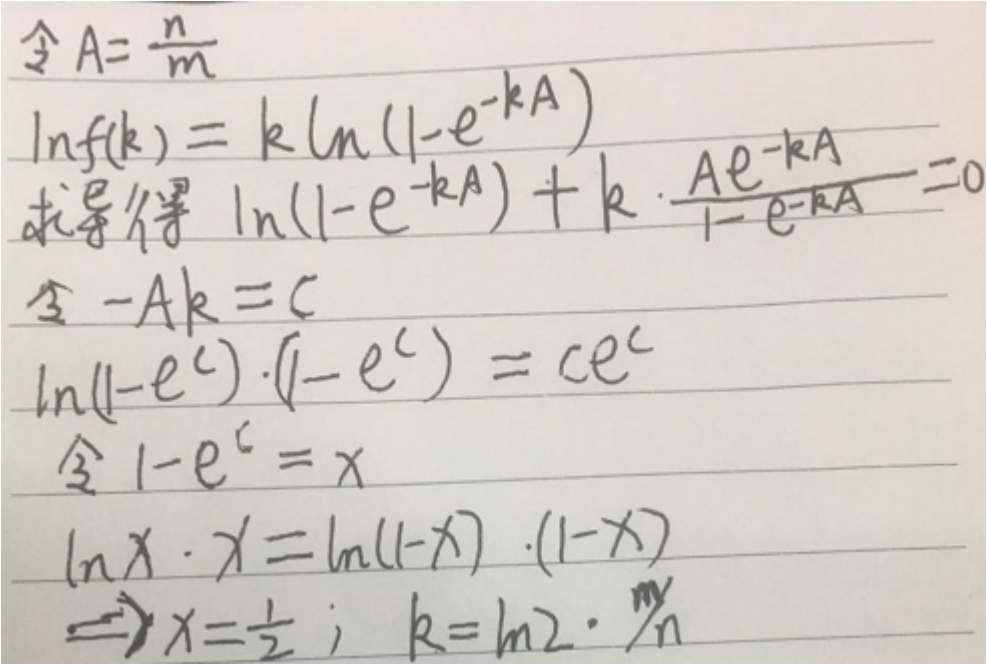 令 A = n/m
ln f(k) = k ln(1-e^{-kA})
求导得 ln(1-e^{-kA}) + k · \frac{Ae^{-kA}}{1-e^{-kA}} = 0
令 -Ak = c
ln(1-e^c)·(1-e^c) = ce^c
令 1-e^c = x
ln x · x = ln(1-x) · (1-x)
⇒ x = 1/2 ; k = ln2 · m/n